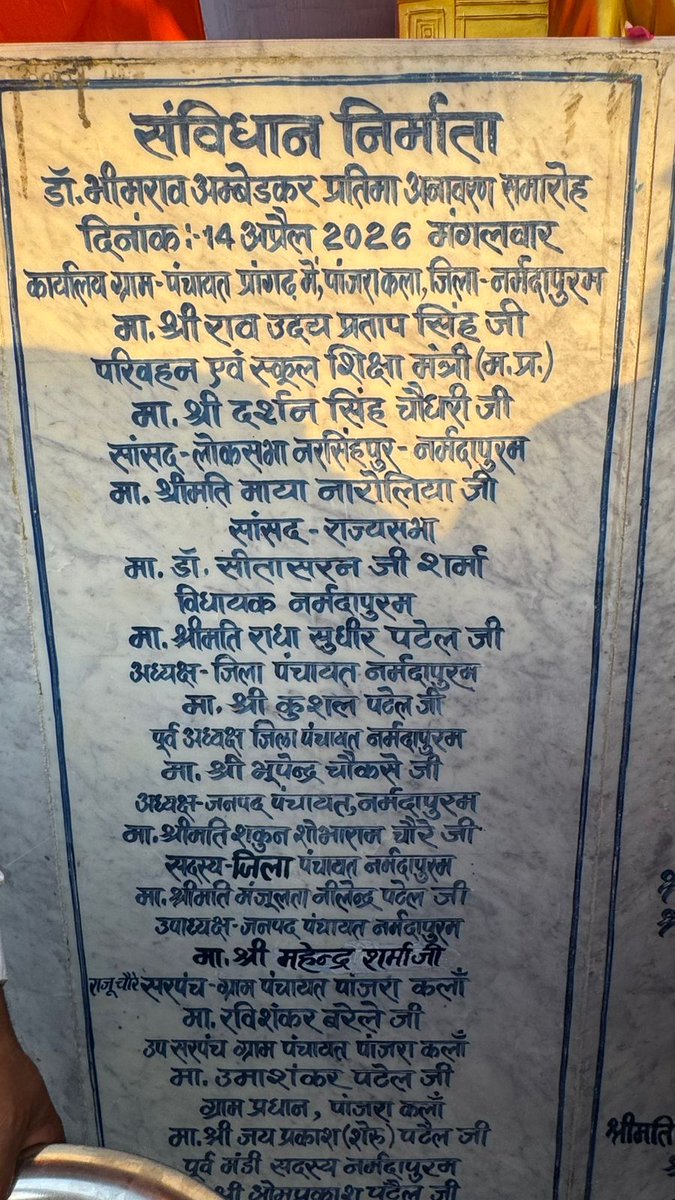 संविधान निर्माता
डॉ. भीमराव अम्बेडकर प्रतिमा अनावरण समारोह
दिनांक :- 14 अप्रैल 2026 मंगलवार
कार्यालय ग्राम-पंचायत प्रांगढ़ में, पांजराकला, जिला-नर्मदापुरम
मा. श्री राव उदय प्रताप सिंह जी
परिवहन एवं स्कूल शिक्षा मंत्री (म.प्र.)
मा. श्री दर्शन सिंह चौधरी जी
सांसद-लोकसभा नरसिंहपुर-नर्मदापुरम
मा. श्रीमति माया नारोलिया जी
सांसद - राज्यसभा
मा. डॉ. सीतासरन जी शर्मा
विधायक नर्मदापुरम
मा. श्रीमति राधा सुधीर पटेल जी
अध्यक्ष-जिला पंचायत नर्मदापुरम
मा. श्री कुशल पटेल जी
पूर्व अध्यक्ष जिला पंचायत नर्मदापुरम
मा. श्री भूपेन्द्र चौकसे जी
अध्यक्ष-जनपद पंचायत, नर्मदापुरम
मा. श्रीमति शकुन शोभाराम चौरे जी
सदस्य-जिला पंचायत नर्मदापुरम
मा. श्रीमति मंजूलता नीलेन्द्र पटेल जी
उपाध्यक्ष-जनपद पंचायत नर्मदापुरम
मा. श्री महेन्द्र शर्मा जी
राजू चौरे सरपंच-ग्राम पंचायत पांजरा कलाँ
मा. रविशंकर बरेले जी
उप सरपंच ग्राम पंचायत पांजरा कलाँ
मा. उमाशंकर पटेल जी
ग्राम प्रधान, पांजरा कलाँ
मा. श्री जय प्रकाश (शेरू) पटेल जी
पूर्व मंडी सदस्य नर्मदापुरम
श्री ओमप्रकाश पटेल जी
श्रीमति